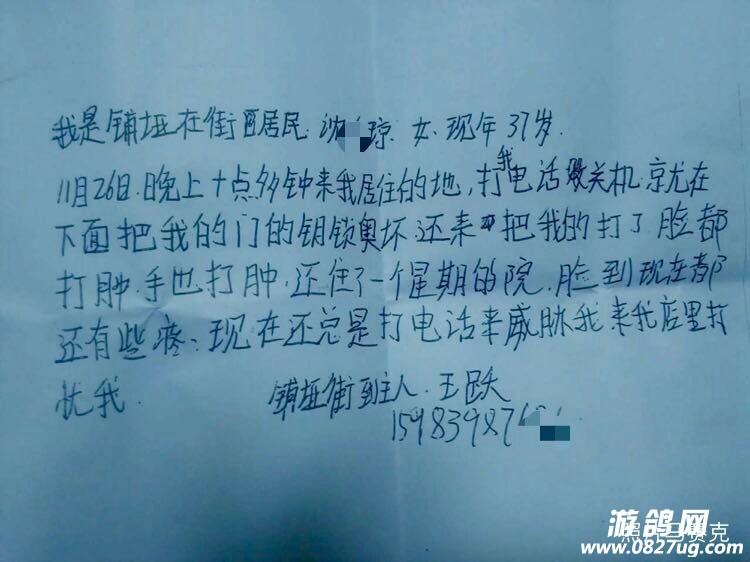 我是铺垭在街 居民 沈 琼 女 现年37岁.
11月26日.晚上十点多钟来我居住的地,打我电话 关机.京尤在
下面把我的门的钥锁奥坏还来 把我的打了脸都
打肿.手也打肿.还住了一个星期的院.脸到现在都
还有些疼.现在还总是打电话来威胁我来我店里打
扰我.
铺垭街 主人.王跃
15983987
游鸽网
www.0827ug.com